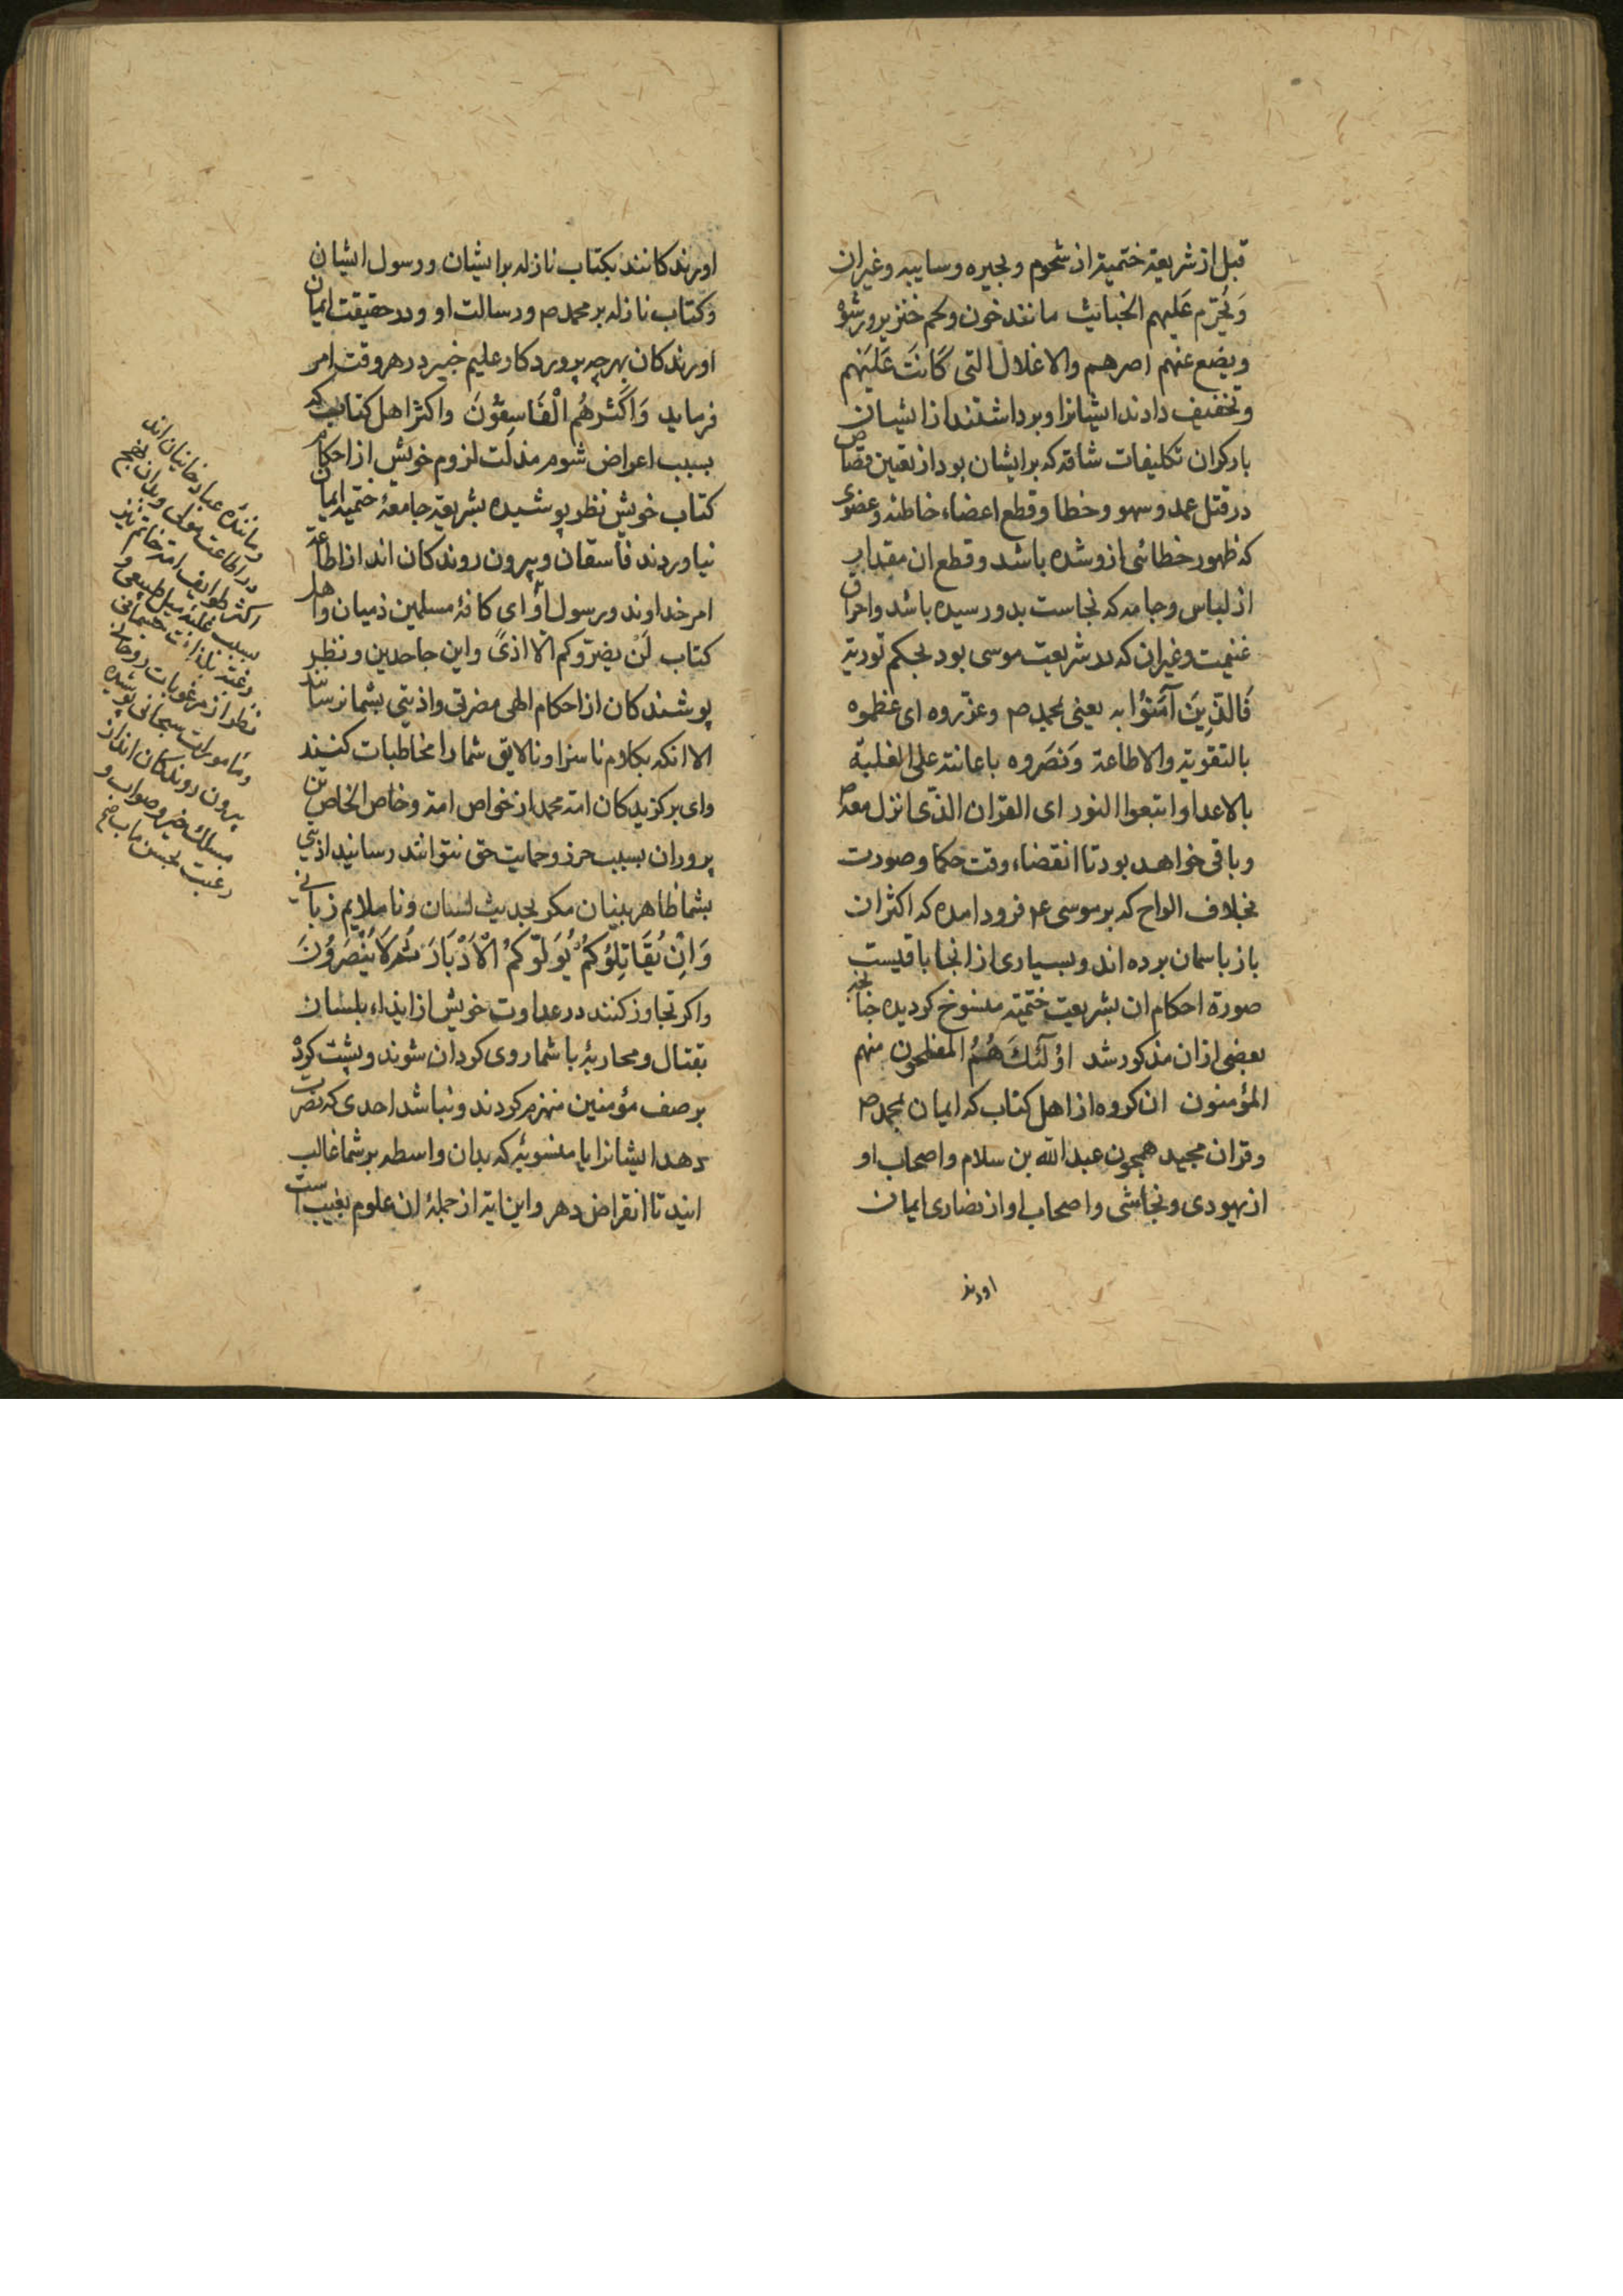 قبل از شریعة ختمیة از شحوم و بحیره و سایبه و غیر ان
وَیُحَرّم عَلیهم الخبائث مانند خون و لحم خنزیر و رشوه
ویضع عنهم اصرهم والاغلال التی کَانَت عَلَیَهم
و تخفیف دادند ایشانرا و برداشتند از ایشان
بار کران تکلیفات شاقه که بر ایشان بود از تعیین قصاص
در قتل عمد و سهو و خطا و قطع اعضاء خاطئه و عضوی
که ظهور خطائی ازو شده باشد و قطع ان مقدار
از لباس و جامه که نجاست بدو رسیده باشد و احراق
غنیمت و غیر ان که در شریعت موسی بود بحکم توریة
فَالّذِینَ آمَنُوْا به یعنی بمحمد ص و عزّروه ای عظموه
بالتقویة والاطاعة وَنَصَروه باعانته علی الغلبة
بالاعدا واتبعوا النور ای القران الذّی انزل معه
و باقی خواهد بود تا انقضاء وقت حکما و صورت
بخلاف الواح که بر موسی ع فرود امده که اکثر ان
باز باسمان برده اند و بسیاری از انجا باقیست
صورة احکام ان بشریعت ختمیّة منسوخ کردیده جنانجه
بعضی ازان مذکور شد اوُلَئکَ هُمُ المفلحون منهم
المؤمنون ان کروه از اهل کتاب که ایمان بمحمد ص
و قران مجید همچون عبد الله بن سلام و اصحاب او
از یهودی و نجاشی و اصحاب او از نصاری ایمان
اورند
اورند کانند بکتاب نازله بر ایشان و رسول ایشان
و کتاب نازله بر محمد ص و رسالت او و در حقیقت ایمان
اورند کان بهر چه پرورد کار علیم خبیر در هر وقت امر
فرماید وَاَکْثرهُم الْفَاسِقُوْنَ و اکثر اهل کتاب که
بسبب اعراض شوم مذلّت لزوم خویش از احکام
کتاب خویش نظر پوشیده بشریعة جامعهٔ ختمیه ایمان
نیاوردند فاسقان و بیرون روند کان اند از اطاعة
امر خداوند و رسول او ای کافهٔ مسلمین ذمیان و اهل
کتاب لَنْ یضرّوکم الّا اذیً و این جاحدین و نظر
پوشند کان از احکام الهی مضرتی و اذیتی بشما نرسانند
الا انکه بکلام ناسزا و نالایق شما را مخاطبات کنند
و ای برکزید کان امة محمد از خواص امة و خاص الخاص
پروران بسبب حرز و حمایت حق نتوانند رسانید اذیتی
بشما ظاهر بینان مکر بحدیث لسان و ناملایم زبانی
وَاِنْ یُقَاتِلُوْکُمْ یُوَلّوْکمُ الْاَدْبَارَ ثُمَّ لَا یَنْصَرُوُنَ
و اکر تجاوز کنند در عداوت خویش از ایذاء بلسان
بقتال و محاربهٔ با شما روی کردان شوند و پشت کرده
بر صف مؤمنین منهزم کردند و نباشد احدی که نصرت
دهد ایشانرا یا منسوبی که بدان واسطه بر شما غالب
ایند تا انقراض دهر و این ایة از جملهٔ ان علوم بغیب است
در اطاعت مولی
اکثر طوایف امة خاتم نیز
بسبب غلبه میل طبیعی و
رغبة بلذات جسمانی
نظر از مرغوبات روحانی
و مامورات سبحانی پوشیده
بیرون روند کان اند از
مسلک خیر و صواب و